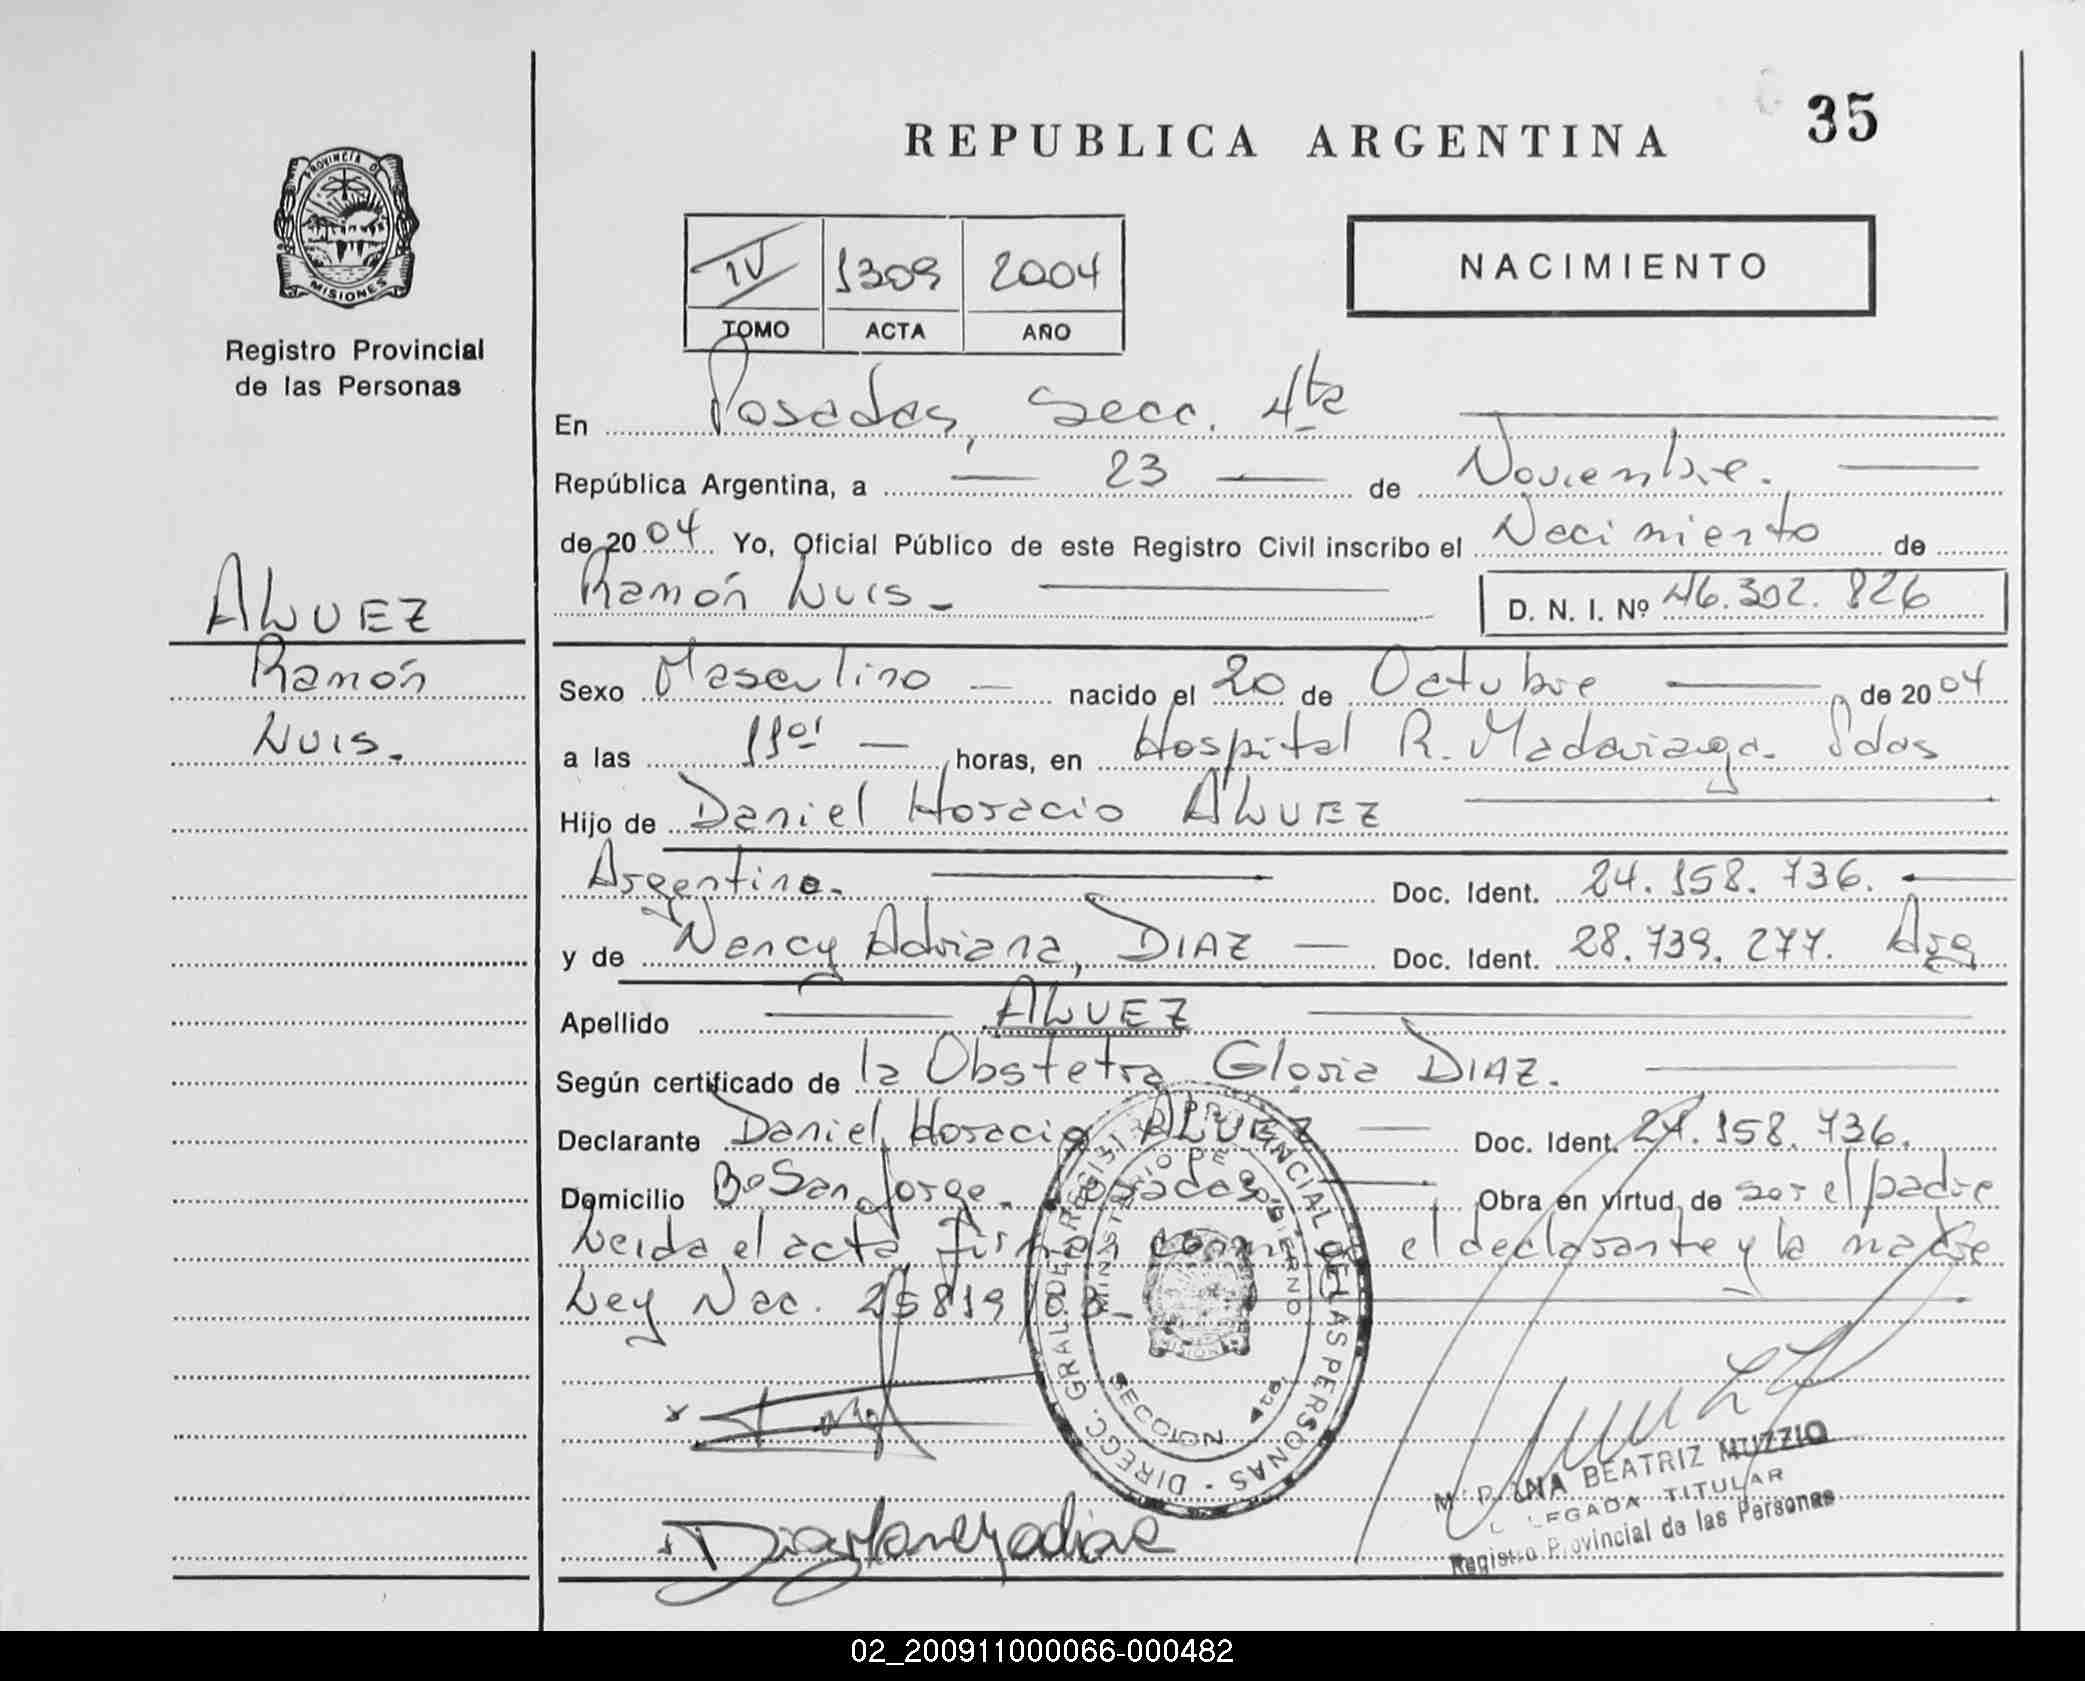 REPUBLICA ARGENTINA
35
PROVINCIA D
MISIONES
Registro Provincial
de las Personas
IV 1309 2004
TOMO ACTA AÑO
NACIMIENTO
En Posadas, Secc. 4ta
República Argentina, a 23 de Noviembre.
de 2004 Yo, Oficial Público de este Registro Civil inscribo el Nacimiento de
Ramón Luis. D. N. I. Nº 46.302.826
ALVEZ
Ramón
Luis.
Sexo Masculino nacido el 20 de Octubre de 2004
a las 11 01 horas, en Hospital R. Madariaga. Pdas
Hijo de Daniel Horacio ALVEZ
Argentino. Doc. Ident. 24.158.736.
y de Nancy Adriana, DIAZ Doc. Ident. 28.739.277. Arg
Apellido ALVEZ
Según certificado de la Obstetra Gloria DIAZ.
Declarante Daniel Horacio ALVEZ Doc. Ident. 24.158.736.
Domicilio Bº San Jorge. Posadas Obra en virtud de ser el padre
Leida el acta firman conmigo el declarante y la madre
Ley Nac. 25819/03-
DIRECC. GRAL. DEL REGISTRO PROVINCIAL DE LAS PERSONAS
MINISTERIO DE GOBIERNO
SECCION 4ta.
BEATRIZ MUZZIO
DELEGADA TITULAR
Registro Provincial de las Personas
02_200911000066-000482